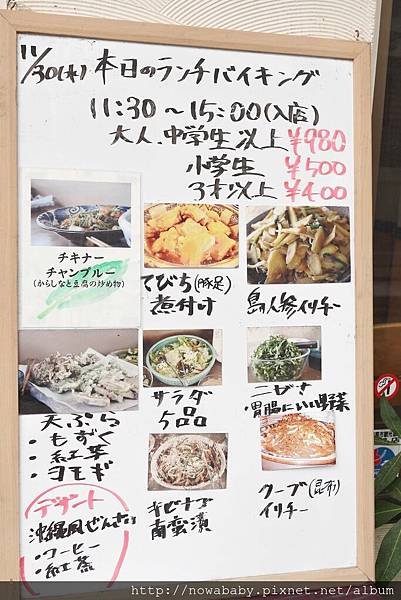 11/30(水) 本日のランチバイキング
11:30～15:00(入店)
大人.中学生以上 ¥980
小学生 ¥500
3才以上 ¥400
チキナー
チャンプルー
(からしなと豆腐の炒め物)
てびち(豚足)
煮付け
島人参イリチー
天ぷら
・もずく
・紅芋
・ヨモギ
サラダ
5品
ニガナ
・胃腸にいい野菜
キビナゴ
南蛮漬
クーブ(昆布)
イリチー
デザート
沖縄風ぜんざい
・コーヒー
・紅茶
http://nowababy.pixnet.net/album